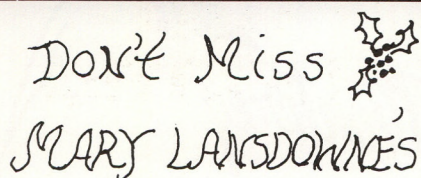 DON't Miss
MARY LANSDOWNE'S